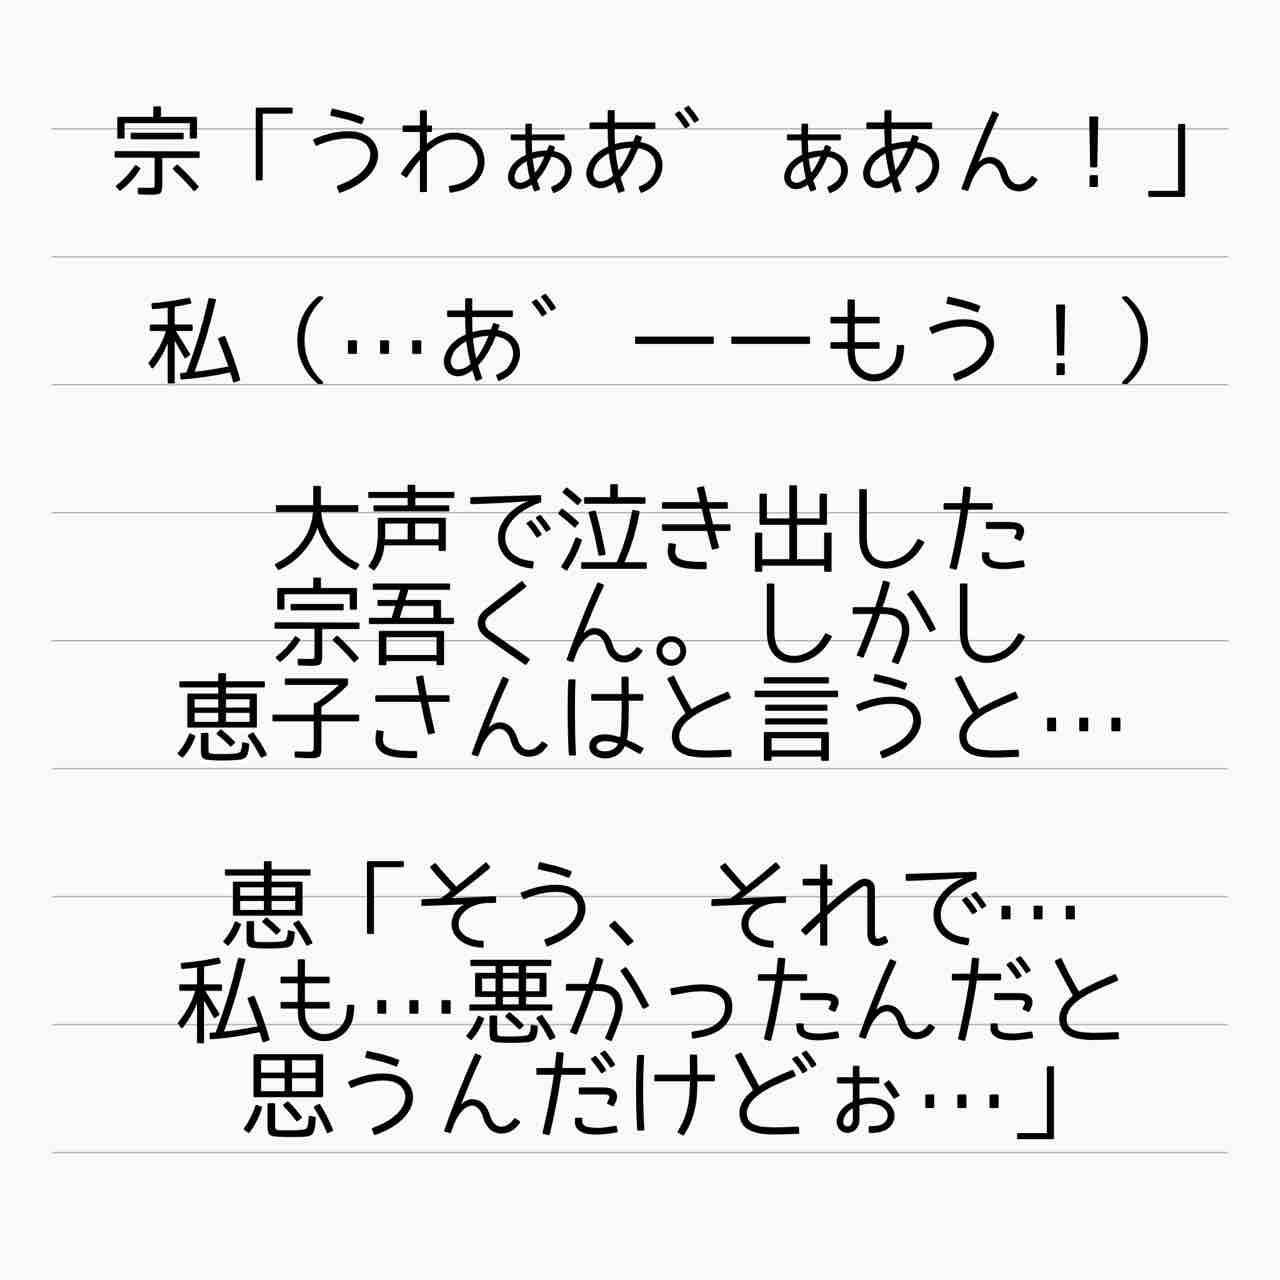 宗「うわぁあ゛ぁあん！」
私（…あ゛ーーもう！）
大声で泣き出した
宗吾くん。しかし
恵子さんはと言うと…
恵「そう、それで…
私も…悪かったんだと
思うんだけどぉ…」